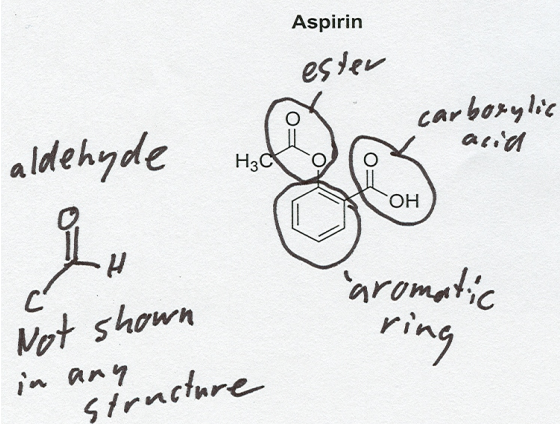 Aspirin
ester
carboxylic
acid
aldehyde
O
H3C
O
O
OH
O
H
C
aromatic
ring
Not shown
in any
structure